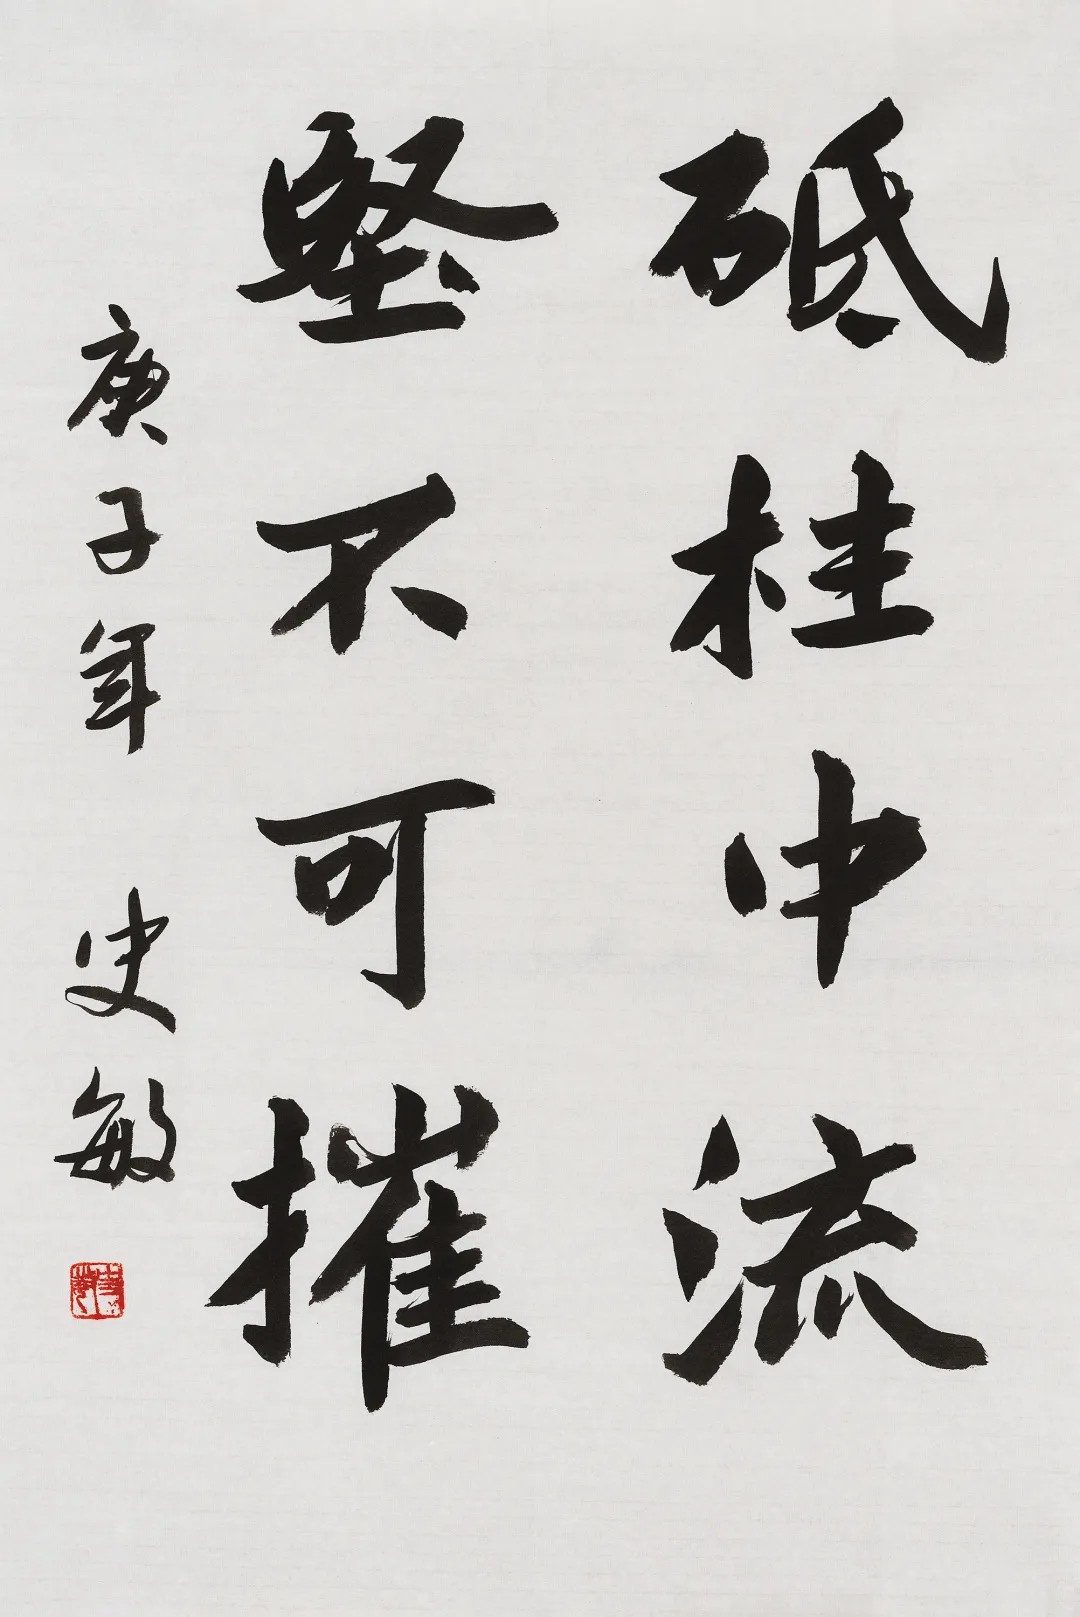 砥柱中流
堅不可摧
庚子年 史敏